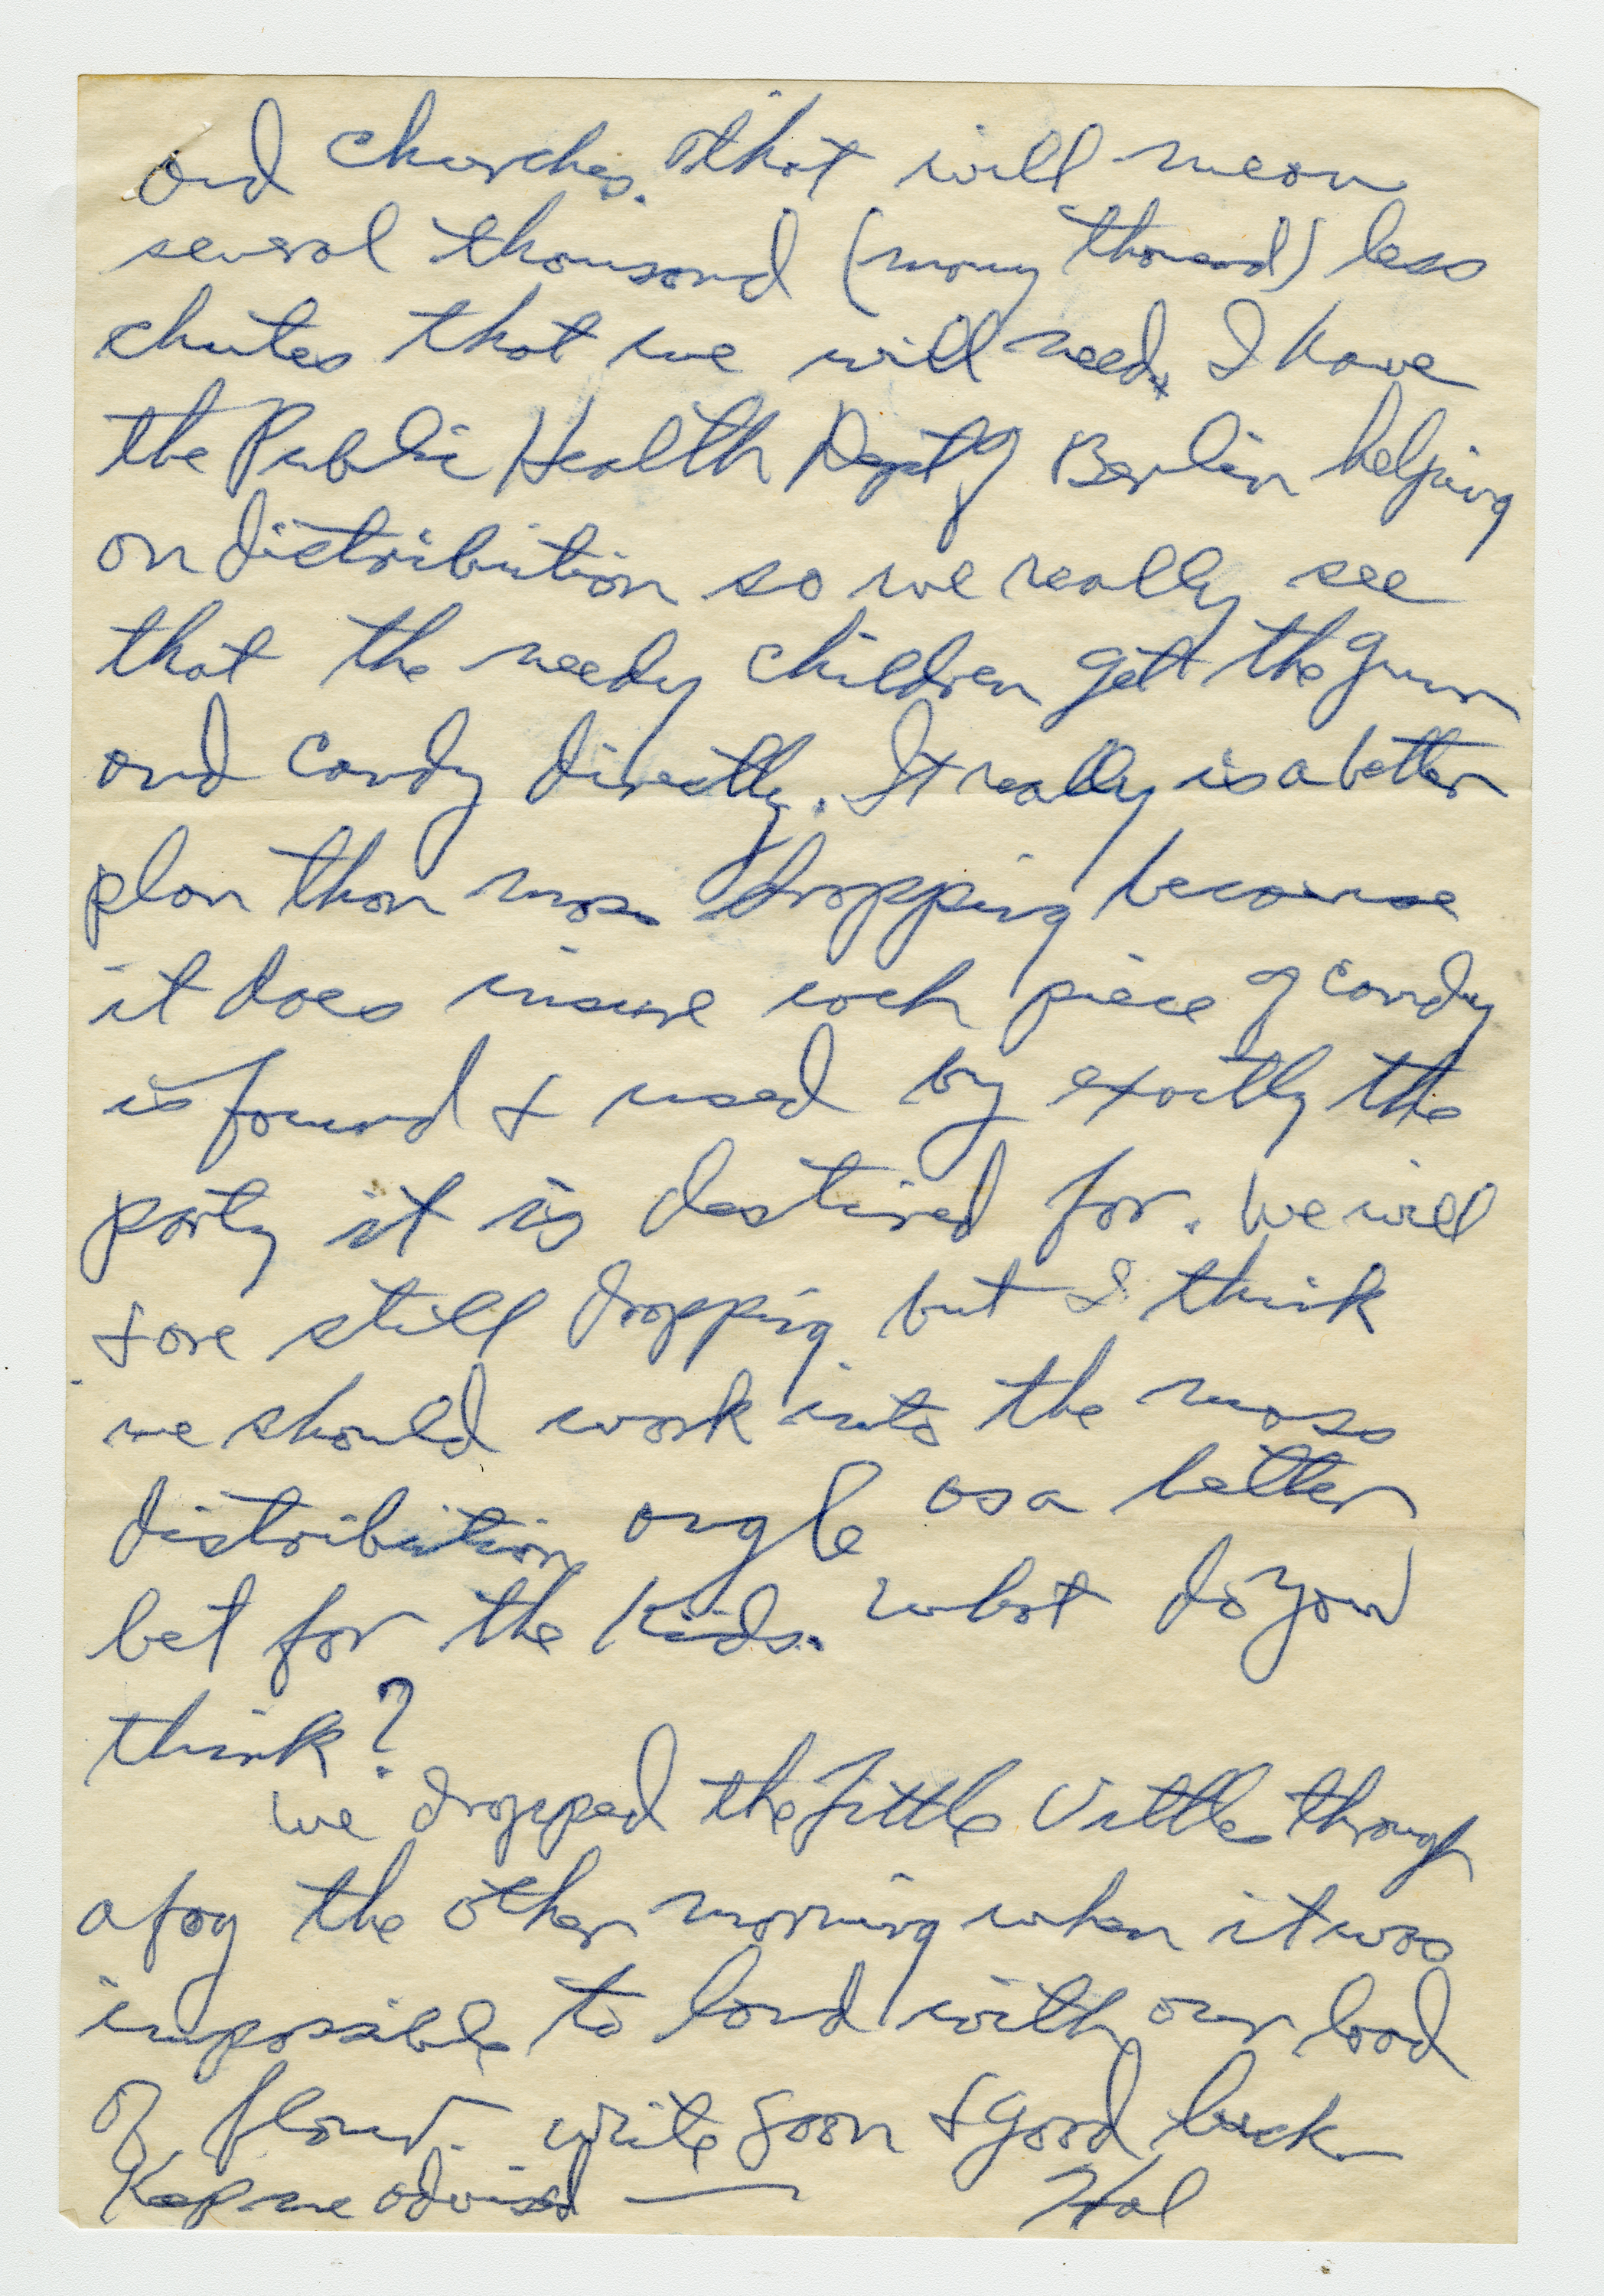 and churches. That will mean
several thousand (many thousand) less
chutes that we will need. I have
the Public Health Dept of Berlin helping
on distribution so we really see
that the needy children get the gum
and candy directly. It really is a better
plan than mass dropping because
it does insure each piece of candy
is found & used by exactly the
party it is destined for. We will
& are still dropping but I think
we should work into the mass
distribution angle as a better
bet for the kids. What do you
think?
We dropped the Little Vittles through
a fog the other morning when it was
impossible to land with our load
of flour. Write soon & good luck
Keep me advised — Hal